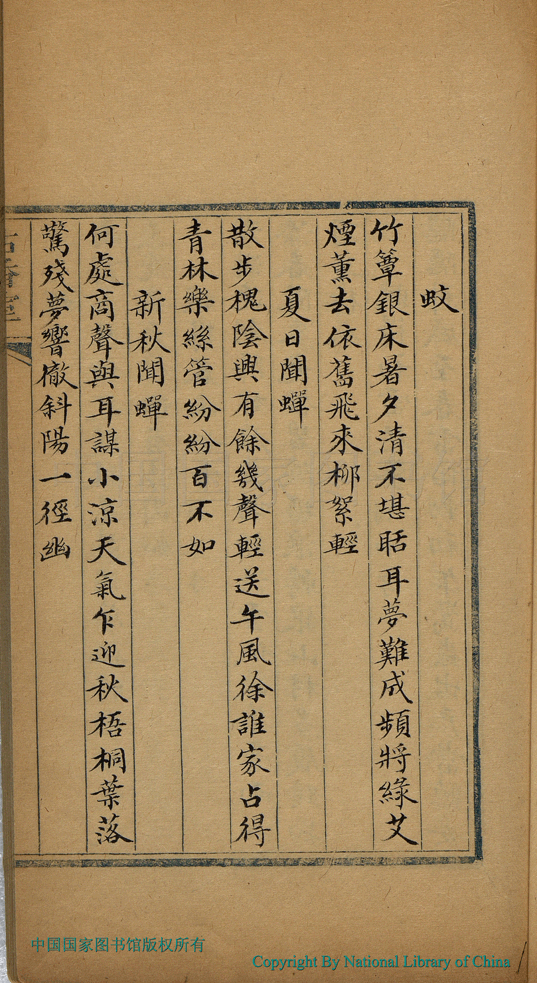 蚊
竹簟銀床暑夕清不堪聒耳夢難成頻將綠艾
煙薰去依舊飛來柳絮輕
夏日聞蟬
散步槐陰興有餘幾聲輕送午風徐誰家占得
青林樂絲管紛紛百不如
新秋聞蟬
何處商聲與耳謀小涼天氣乍迎秋梧桐葉落
驚殘夢響徹斜陽一徑幽
中国国家图书馆版权所有
Copyright By National Library of China